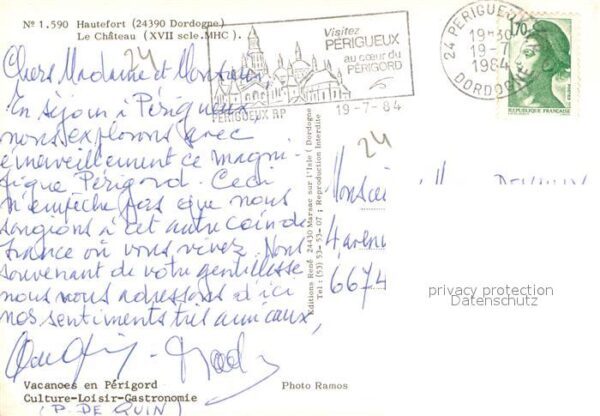 Nº 1.590 Hautefort (24390 Dordogne)
Le Château (XVII scle.MHC).
24
Visitez
PÉRIGUEUX
au cœur du
PÉRIGORD
PERIGUEUX RP
19-7-84
24 PERIGUEUX
19-30
19-7
1984
DORDOGNE
1,70
REPUBLIQUE FRANÇAISE
Chers Madame et Monsieur,
En séjour à Périgueux
nous explorons avec
émerveillement ce magni
fique Périgord. Ceci
n'empêche pas que nous
songions à cet autre coin de
France où vous vivez. Nous
souvenant de votre gentillesse
nous vous adressons d'ici
nos sentiments très amicaux,
Editions René 24430 Marsac sur l'Isle (Dordogne
Tel: (53) 53-53-07; Reproduction Interdite
24
Monsieur
4, avenu
6674
privacy protection
Datenschutz
Vacances en Périgord
Culture-Loisir-Gastronomie
Photo Ramos
(P. DE QUIN)